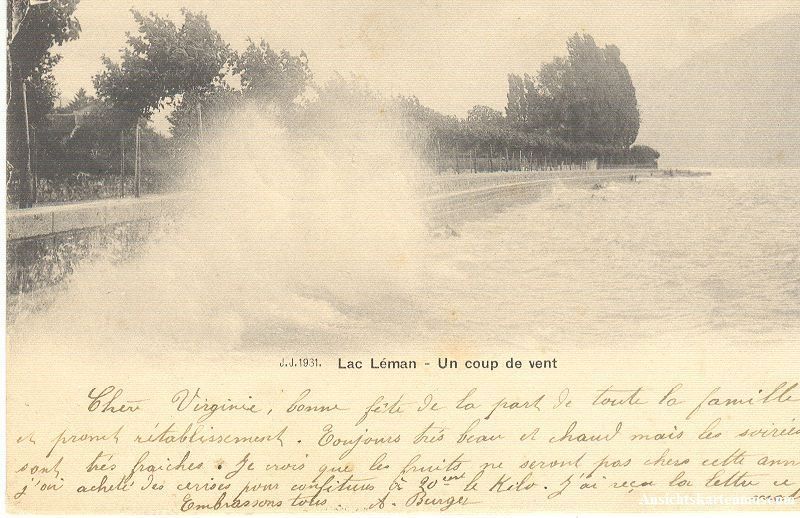 J.J.1931. Lac Léman - Un coup de vent
Chère Virginie, bonne fête de la part de toute la famille
et promt rétablissement. Toujours très beau et chaud mais les soirées
sont très fraîches. Je crois que les fruits ne seront pas chers cette ann
j'ai acheté des cerises pour confitures à 30 le Kilo. J'ai reçu la lettre ce
Embrassons tous. A. Burger
Ansichtskarten